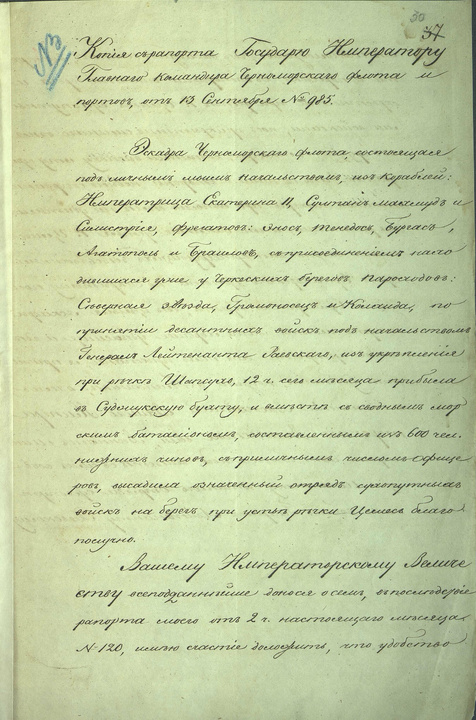 30
37
№ 3
Копія съ рапорта Государю Императору
Главнаго Командира Черноморскаго флота и
портовъ, отъ 13 Сентября № 985.
Эскадра Черноморскаго флота, состоящая
подъ личнымъ моимъ начальствомъ, изъ кораблей:
Императрица Екатерина II, Султанъ Махмудъ и
Силистрія, фрегатовъ: Эносъ, Тенедосъ, Бургасъ,
Агатополь и Браиловъ, съ присоединеніемъ нахо-
дившихся уже у Черкескихъ береговъ пароходовъ:
Сѣверная звѣзда, Громоносецъ и Колхида, по
принятіи десантныхъ войскъ подъ начальствомъ
Генералъ Лейтенанта Раевскаго, изъ укрѣпленія
при рѣчкѣ Шапсухо, 12 ч. сего мѣсяца прибыла
въ Суджукскую бухту, и вмѣстѣ съ своднымъ мор-
скимъ баталіономъ, составленнымъ изъ 600 чел.
нижнихъ чиновъ, съ приличнымъ числомъ офице
ровъ, высадила означенный отрядъ сухопутныхъ
войскъ на берегъ при устьѣ рѣчки Цемесъ благо-
получно.
Вашему Императорскому Величе
ству всеподданнѣйше донося о семъ, въ послѣдствіе
рапорта моего отъ 2 ч. настоящаго мѣсяца
№ 120, имѣю счастіе доложить, что удобство